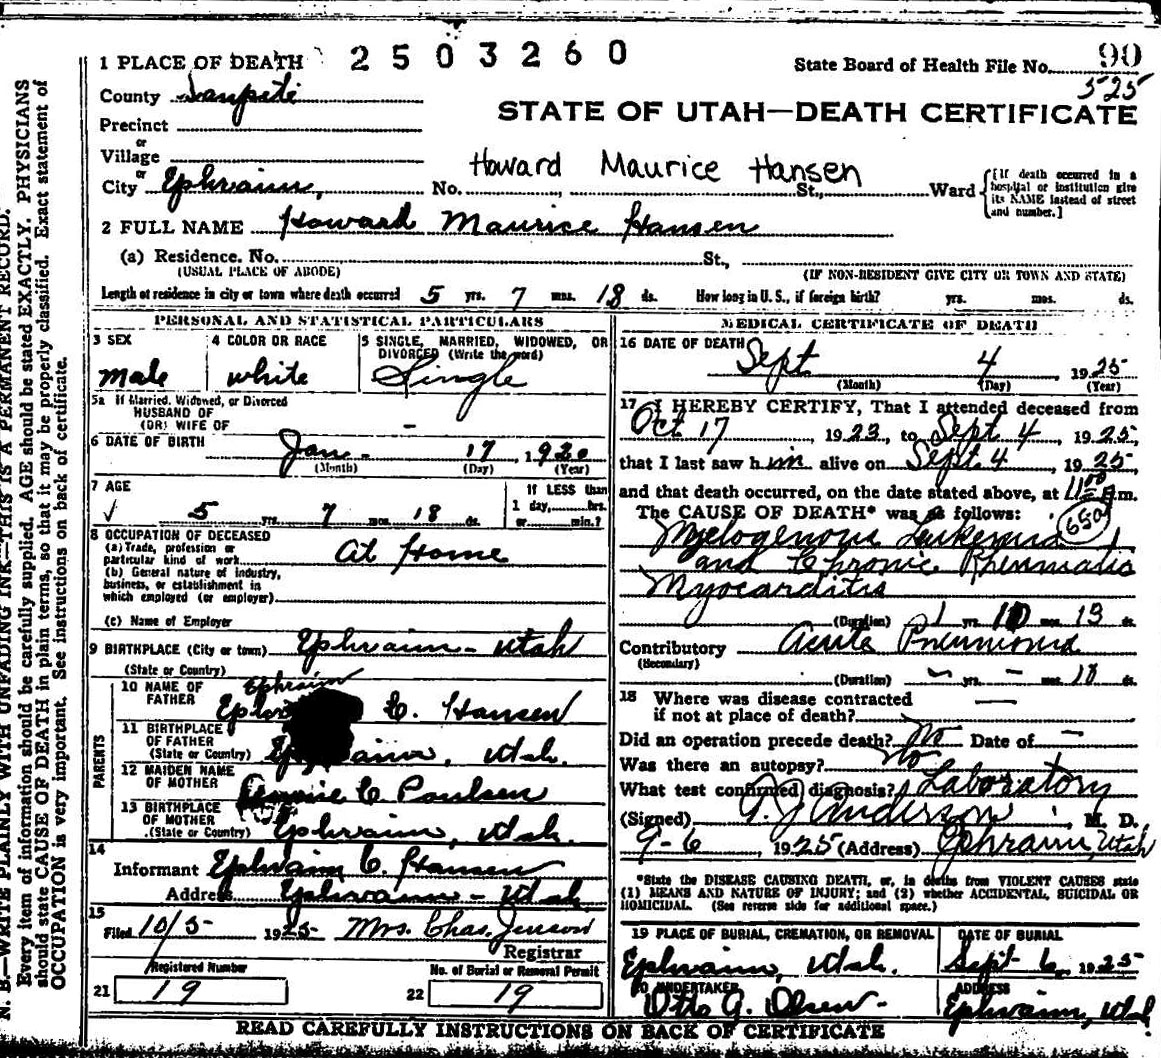 1 PLACE OF DEATH 2503260 State Board of Health File No. 90
525
County Sanpete
STATE OF UTAH—DEATH CERTIFICATE
Precinct
or
Village
or
Howard Maurice Hansen
City Ephraim, No. St., Ward {[If death occurred in a hospital or institution give its NAME instead of street and number.]
2 FULL NAME Howard Maurice Hansen
(a) Residence. No. St.,
(USUAL PLACE OF ABODE) (IF NON-RESIDENT GIVE CITY OR TOWN AND STATE)
Length of residence in city or town where death occurred 5 yrs. 7 mos. 18 ds. How long in U. S., if foreign birth? yrs. mos. ds.
PERSONAL AND STATISTICAL PARTICULARS
3 SEX 4 COLOR OR RACE 5 SINGLE, MARRIED, WIDOWED, OR
DIVORCED (Write the word)
Male white Single
5a If Married, Widowed, or Divorced
HUSBAND OF
(OR) WIFE OF -
6 DATE OF BIRTH Jan. 17, 1920
(Month) (Day) (Year)
7 AGE If LESS than
√ 5 yrs. 7 mos. 18 ds. 1 day, hrs.
or min.?
8 OCCUPATION OF DECEASED
(a) Trade, profession or
particular kind of work At Home
(b) General nature of industry,
business, or establishment in
which employed (or employer)
(c) Name of Employer
9 BIRTHPLACE (City or town) Ephraim - Utah
(State or Country)
PARENTS
10 NAME OF Ephraim
FATHER C. Hansen
11 BIRTHPLACE
OF FATHER
(State or Country) Utah.
12 MAIDEN NAME
OF MOTHER C. Poulsen
13 BIRTHPLACE
OF MOTHER
(State or Country) Ephraim, Utah.
14
Informant Ephraim C. Hansen
Address Ephraim - Utah
15
Filed 10/5- 1925- Mrs. Chas. Jenson
Registrar
Registered Number No. of Burial or Removal Permit
21 19 22 19
MEDICAL CERTIFICATE OF DEATH
16 DATE OF DEATH Sept. 4 1925
(Month) (Day) (Year)
17 I HEREBY CERTIFY, That I attended deceased from
Oct 17 1923, to Sept 4, 1925,
that I last saw him alive on Sept. 4, 1925,
and that death occurred, on the date stated above, at 11 00 m.
The CAUSE OF DEATH* was as follows:
Myelogenous Leukemia
and Chronic Rheumatic
Myocarditis
(Duration) 1 yrs. 10 mos. 13 ds.
Contributory Acute Pneumonia
(Secondary)
(Duration) - yrs. - mos. 18 ds.
18 Where was disease contracted
if not at place of death? —
Did an operation precede death? no Date of -
Was there an autopsy? No
What test confirmed diagnosis? Laboratory
(Signed) Anderson, M. D.
9-6, 1925 (Address) Ephraim, Utah
*State the DISEASE CAUSING DEATH, or, in deaths from VIOLENT CAUSES state
(1) MEANS AND NATURE OF INJURY; and (2) whether ACCIDENTAL, SUICIDAL OR
HOMICIDAL. (See reverse side for additional space.)
19 PLACE OF BURIAL, CREMATION, OR REMOVAL DATE OF BURIAL
Ephraim, Utah. Sept- 6, 1925-
20 UNDERTAKER ADDRESS
Otto G. Olsen- Ephraim, Utah
READ CAREFULLY INSTRUCTIONS ON BACK OF CERTIFICATE
N. B.—WRITE PLAINLY WITH UNFADING INK—THIS IS A PERMANENT RECORD.
Every item of information should be carefully supplied. AGE should be stated EXACTLY. PHYSICIANS
should state CAUSE OF DEATH in plain terms, so that it may be properly classified. Exact statement of
OCCUPATION is very important. See instructions on back of certificate.